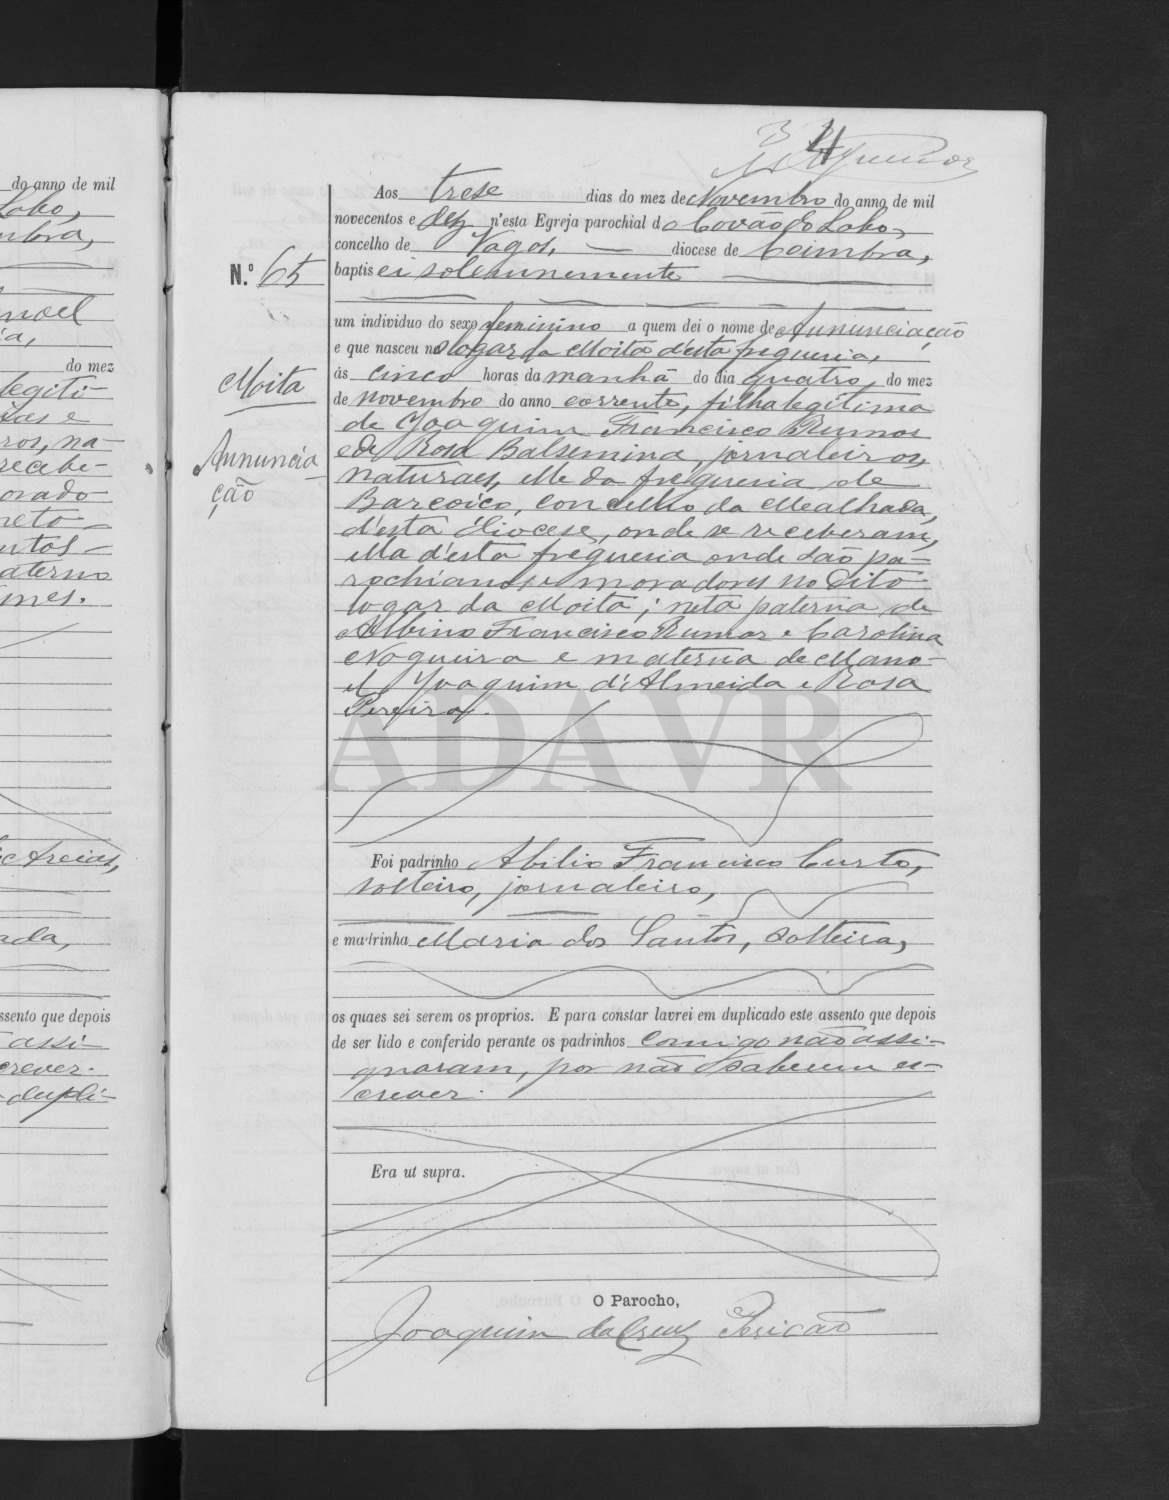 do anno de mil
Lobo,
mbra,
noel
ia,
do mez
legiti-
ros, na-
recebe-
orado
neto
ntos-
aterno
mes.
Areias,
ada,
ssento que depois
assi-
crever.
dupli-
34
Aos trese dias do mez de Novembro do anno de mil
novecentos e dez n'esta Egreja parochial do Covão do Lobo,
concelho de Vagos, diocese de Coimbra,
N.º 65
baptisei solemnemente
um individuo do sexo feminino a quem dei o nome de Annunciação
e que nasceu no logar da Moita d'esta freguesia,
Moita
ás cinco horas da manhã do dia quatro do mez
de novembro do anno corrente, filha legitima
de Joaquim Francisco Rumor
Annuncia
ção
e de Rosa Balsemina, jornaleiros,
naturaes, elle da freguesia de
Barcoiço, concelho da Mealhada,
d'esta diocese, onde se receberam,
ella d'esta freguesia onde são pa-
rochianos e moradores no dito
logar da Moita; neta paterna de
Albino Francisco Rumor e Carolina
Nogueira e materna de Mano-
el Joaquim d'Almeida e Rosa
Pereira.
ADAVR
Foi padrinho Abilio Francisco Curto,
solteiro, jornaleiro,
e madrinha Maria dos Santos, solteira,
os quaes sei serem os proprios. E para constar lavrei em duplicado este assento que depois
de ser lido e conferido perante os padrinhos comigo não assi-
gnaram, por não saberem es-
crever.
Era ut supra.
O Parocho,
Joaquim da Cruz Pericão